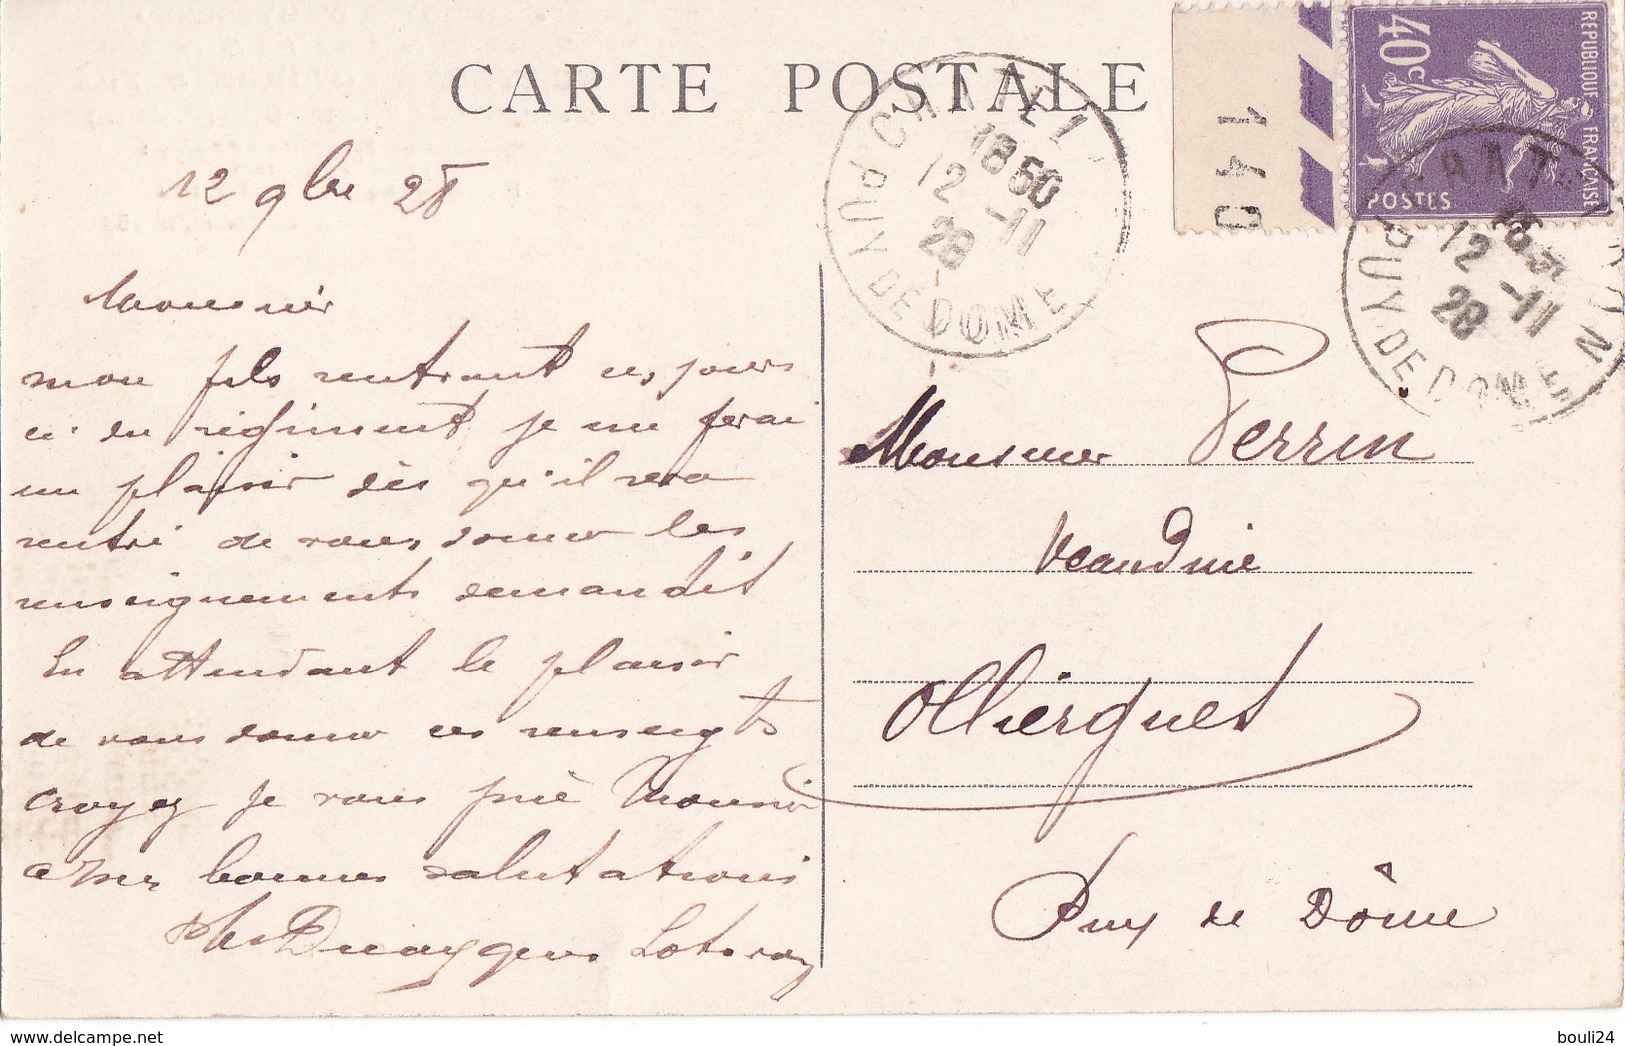 CARTE POSTALE
REPUBLIQUE FRANCAISE
40c
POSTES
140
18 50
12 -11
28
PUY DE DOME
12 -11
28
PUY-DE-DOME
12 9bre 28
Monsieur
mon fils rentrant ces jours
ci du régiment je me ferai
un plaisir dès qu'il sera
rentré de vous donner les
renseignements demandés
En attendant le plaisir
de vous donner ces renseigts
croyez je vous prie Monsieur
a mes bonnes salutations
Monsieur Perrin
Ollierguet
Puy de Dôme
www.delcampe.net
bouli24